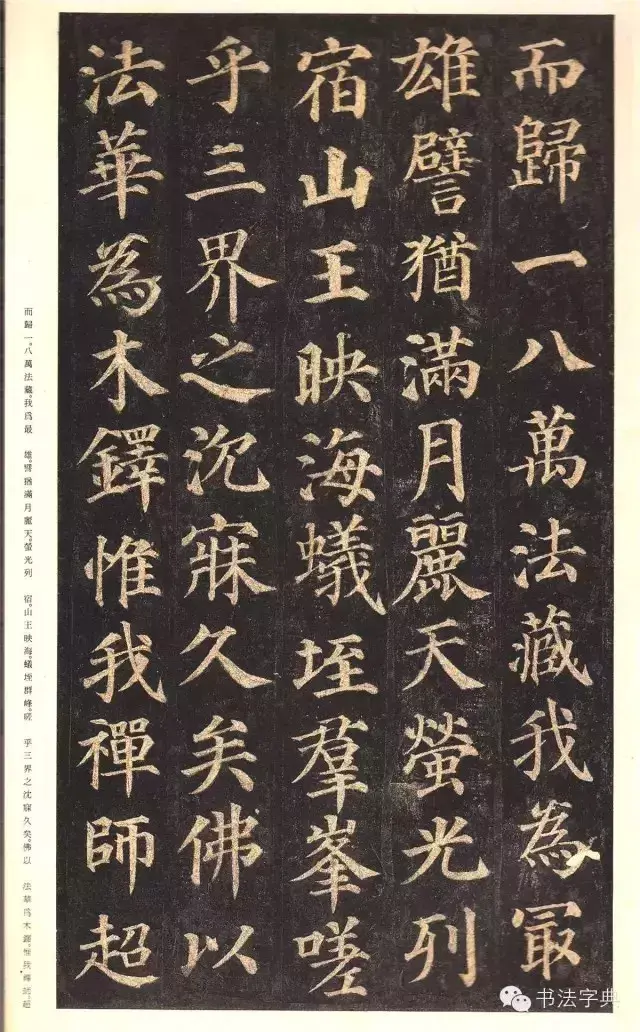 而歸一八萬法藏我為冣
雄譬猶滿月麗天螢光列
宿山王映海蟻垤羣峯嗟
乎三界之沉寐久矣佛以
法華為木鐸惟我禪師超
而歸一。八萬法藏。我爲最 雄。譬猶滿月麗天。螢光列 宿。山王映海。蟻垤群峰。嗟 乎三界之沈寐久矣。佛以 法華爲木鐸。惟我禪師。超
书法字典